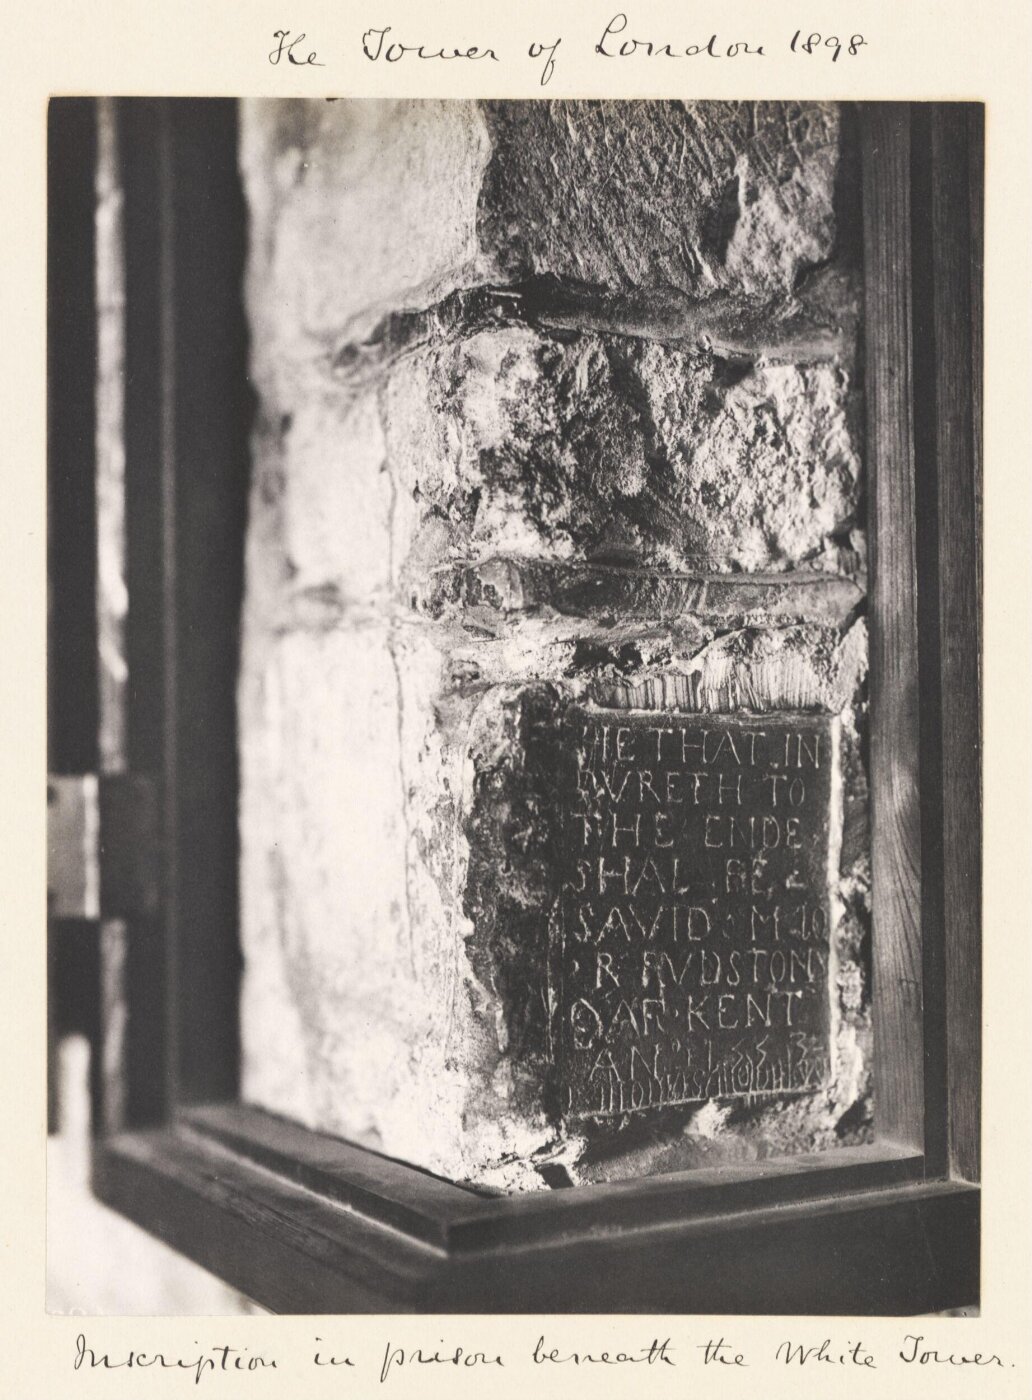 The Tower of London 1898
HE THAT IN
DVRETH TO
THE ENDE
SHAL BE
SAVID M 10
R RVDSTON
DAR KENT
AN
Inscription in prison beneath the White Tower.